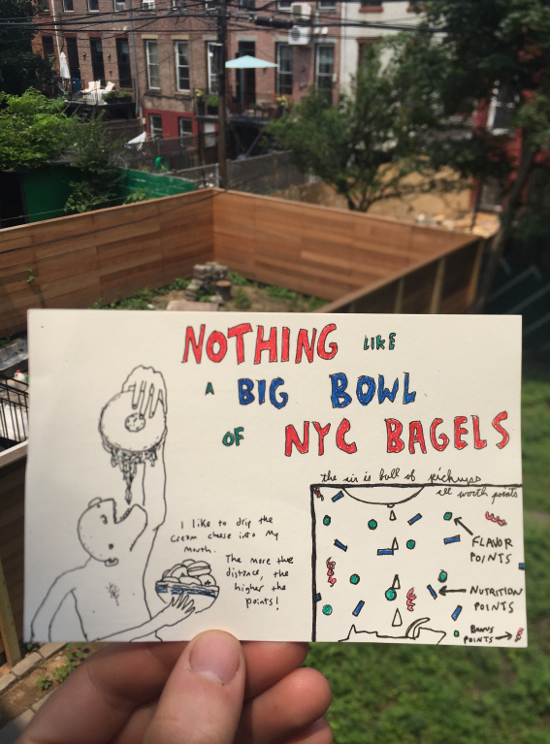 NOTHING LIKE
A BIG BOWL
OF NYC BAGELS
I like to drip the
cream cheese into my
mouth.
The more the
distance, the
higher the
points!
the air is full of
all worth points
FLAVOR
POINTS
NUTRITION
POINTS
BONUS
POINTS